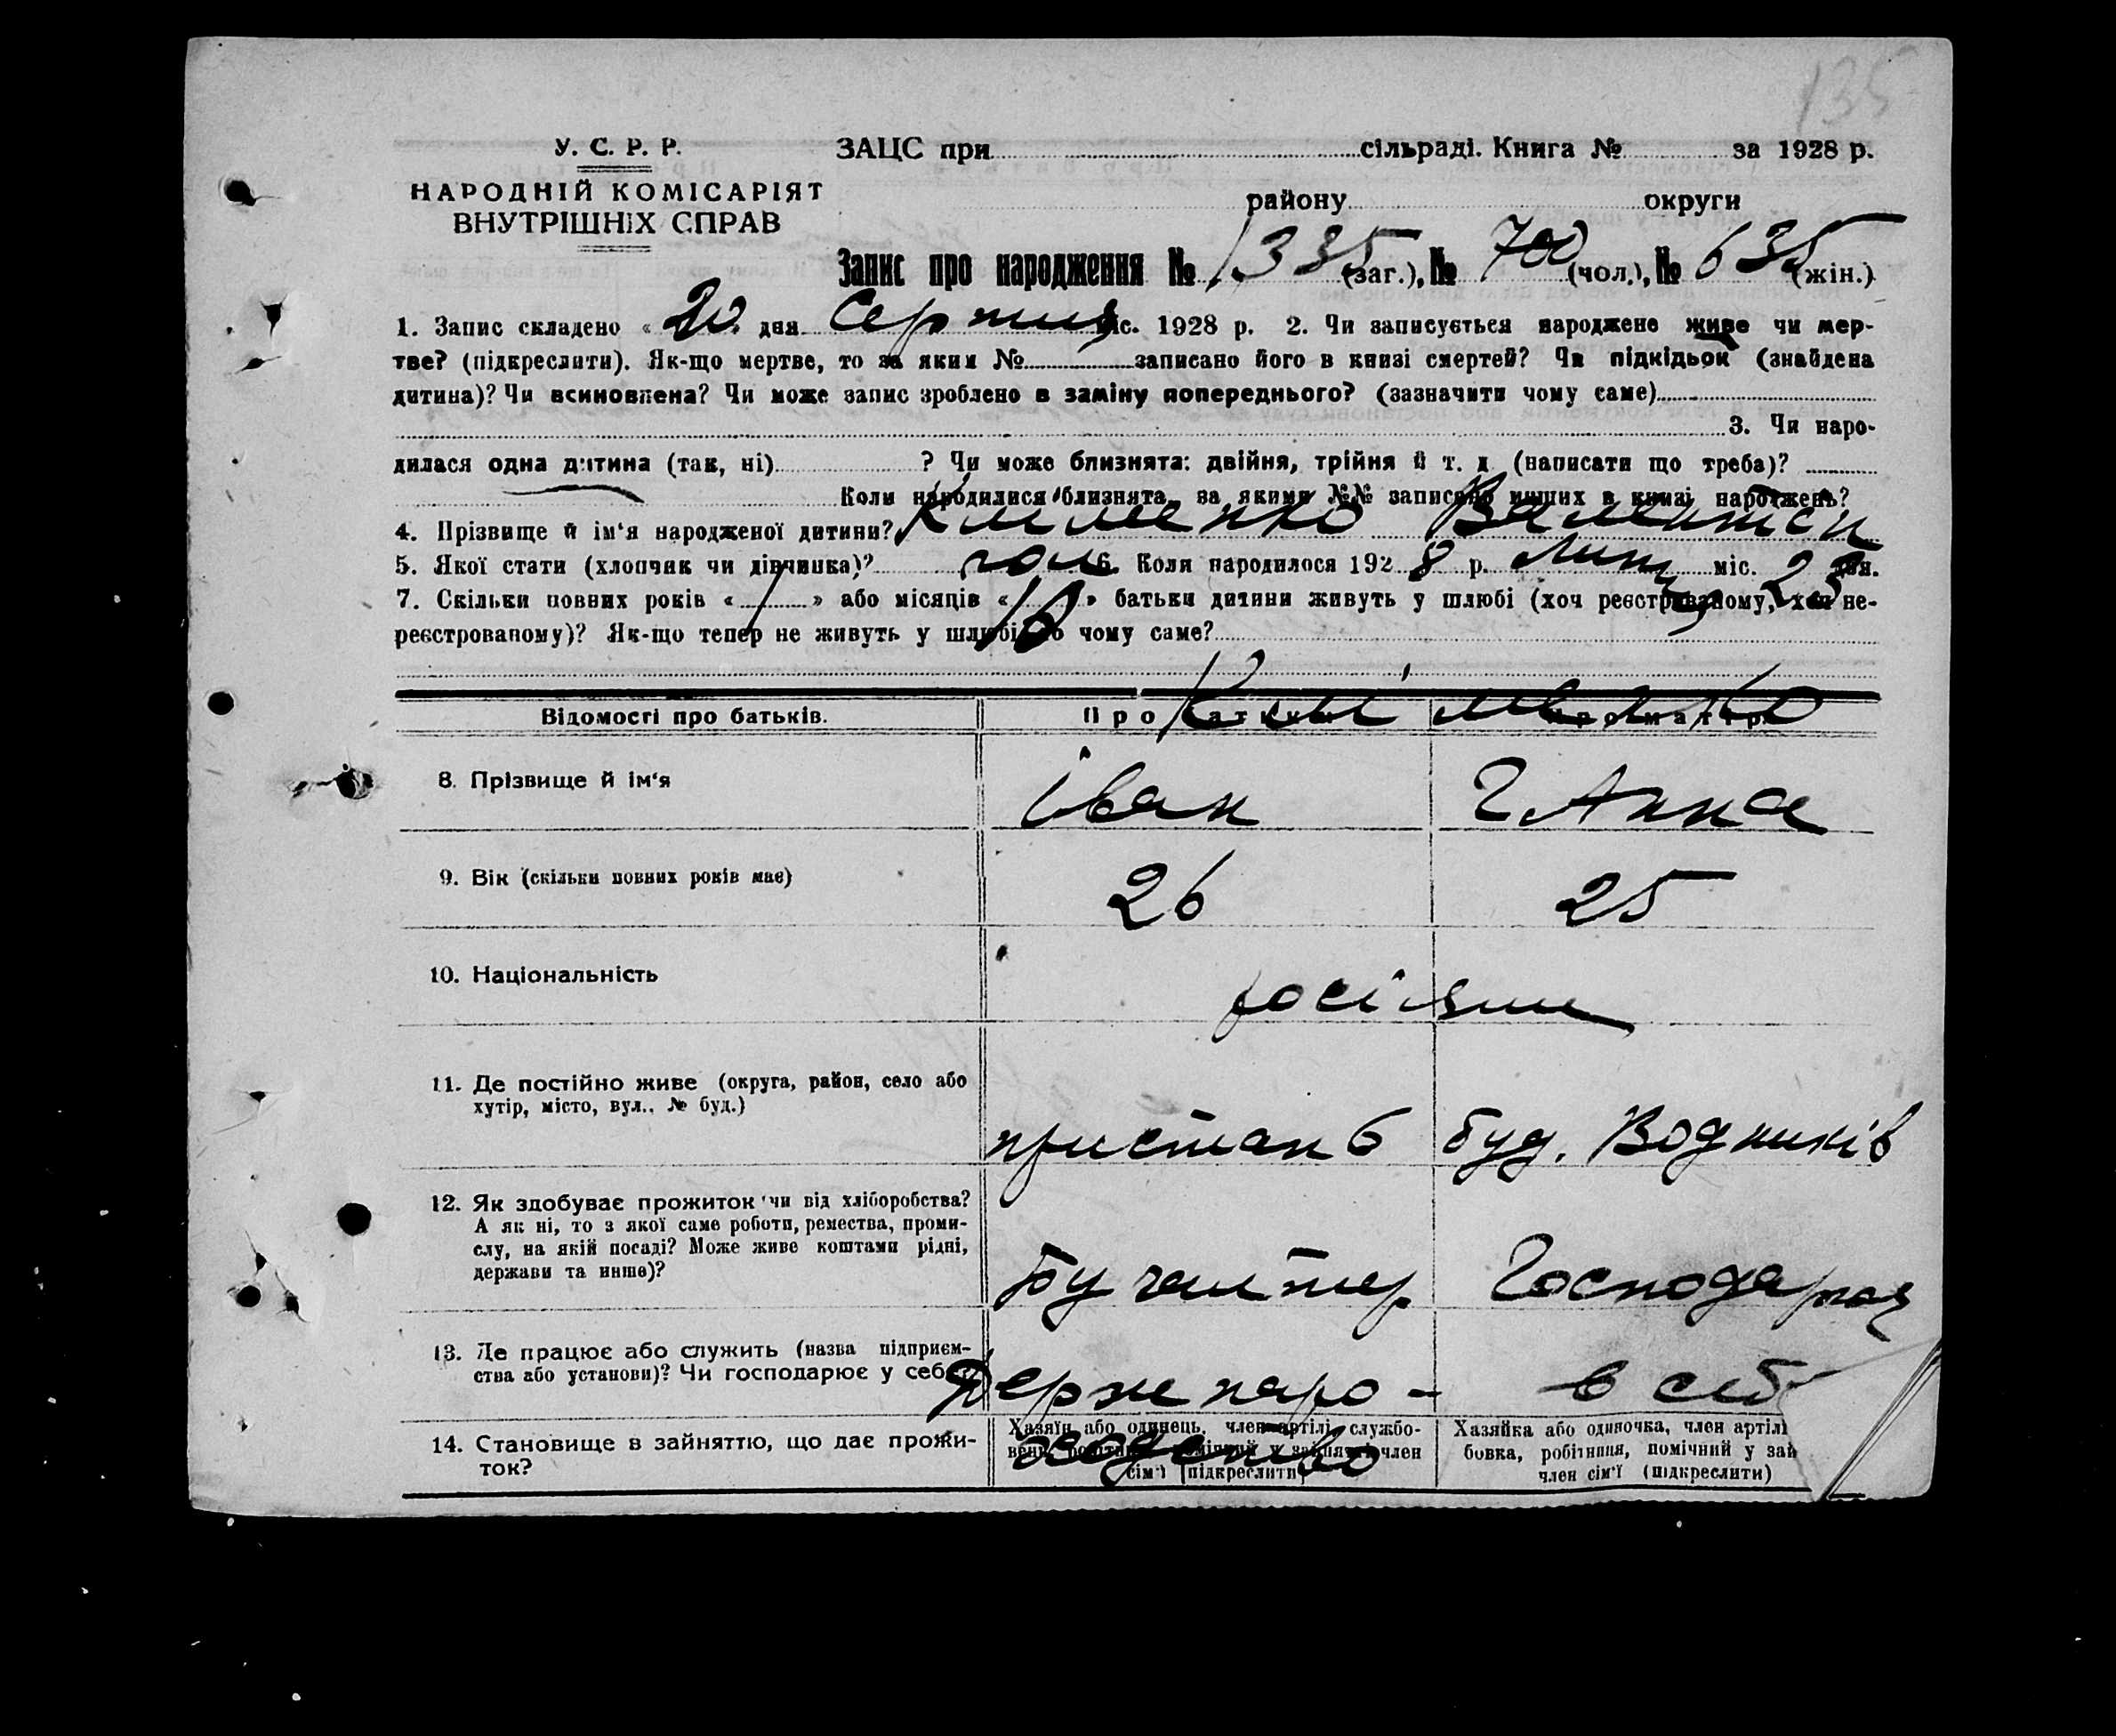 135
У. С. Р. Р.
НАРОДНІЙ КОМІСАРІЯТ
ВНУТРІШНІХ СПРАВ
ЗАЦС при сільраді. Книга № за 1928 р.
району округи
Запис про народження № 1335 (заг.), № 700 (чол.), № 635 (жін.)
1. Запис складено « 20 » дня Серпня міс. 1928 р. 2. Чи записується народжене живе чи мер-
тве? (підкреслити). Як-що мертве, то за яким № записано його в книзі смертей? Чи підкідьок (знайдена
дитина)? Чи всиновлена? Чи може запис зроблено в заміну попереднього? (зазначити чому саме)
3. Чи наро-
дилася одна дитина (так, ні) ? Чи може близнята: двійня, трійня й т. д. (написати що треба)?
Коли народилися близнята, за якими №№ записано инших в книзі народжень?
4. Прізвище й ім‘я народженої дитини? Кліменко Валентин
5. Якої стати (хлопчик чи дівчинка)? чол 6. Коли народилося 1928 р. Липця міс. 23 дня.
7. Скільки повних років « 1 » або місяців « 10 » батьки дитини живуть у шлюбі (хоч реєстрованому, хоч не-
реєстрованому)? Як-що тепер не живуть у шлюбі, то чому саме?
Відомості про батьків. Про батька Про матір
Кліменко
8. Прізвище й ім‘я Іван Ганна
9. Вік (скільки повних років має) 26 25
10. Національність росіяни
11. Де постійно живе (округа, район, село або
хутір, місто, вул., № буд.)
пристань буд. Водників
12. Як здобуває прожиток чи від хліборобства?
А як ні, то з якої саме роботи, ремества, проми-
слу, на якій посаді? Може живе коштами рідні,
держави та инше)?
Бухгалтер Господарка
13. Де працює або служить (назва підприєм-
ства або установи)? Чи господарює у себе?
Держпаро- в себ
ходство
14. Становище в зайняттю, що дає прожи-
ток?
Хазяїн або одинець, член артілі, службо-
вець, робітник, помічний у зайнятті член
сім‘ї (підкреслити)
Хазяйка або одиночка, член артілі
бовка, робітниця, помічний у зай
член сім‘ї (підкреслити)